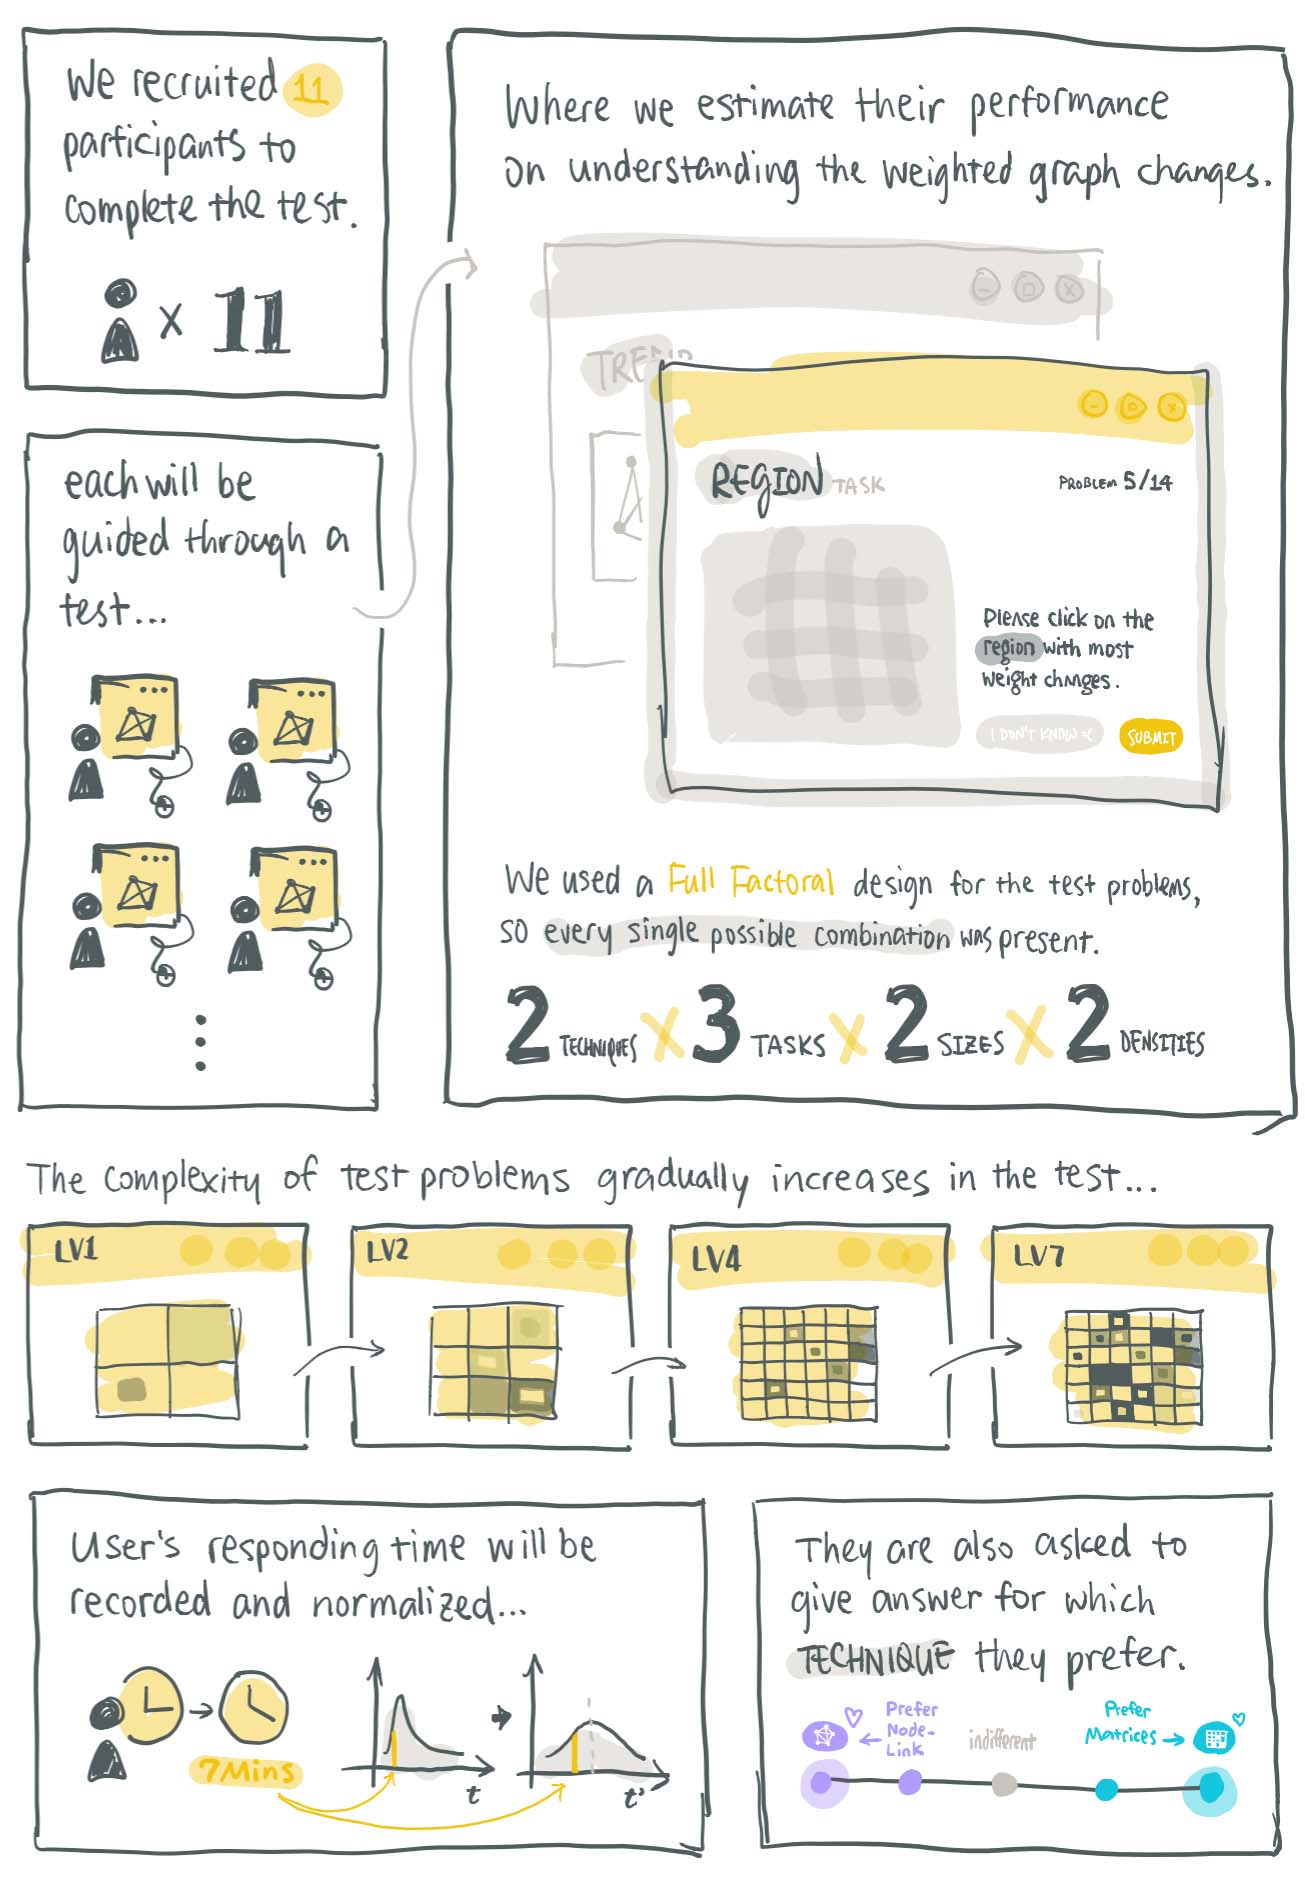 We recruited 11
participants to
complete the test.
x 11
each will be
guided through a
test...
Where we estimate their performance
on understanding the weighted graph changes.
TREND
REGION TASK
PROBLEM 5/14
Please click on the
region with most
weight changes.
I DON'T KNOW :(
SUBMIT
We used a Full Factoral design for the test problems,
so every single possible combination was present.
2 TECHNIQUES X 3 TASKS X 2 SIZES X 2 DENSITIES
The complexity of test problems gradually increases in the test...
LV1
LV2
LV4
LV7
User's responding time will be
recorded and normalized...
7 Mins
t
t'
They are also asked to
give answer for which
TECHNIQUE they prefer.
Prefer
Node-
Link
indifferent
Prefer
Matrices